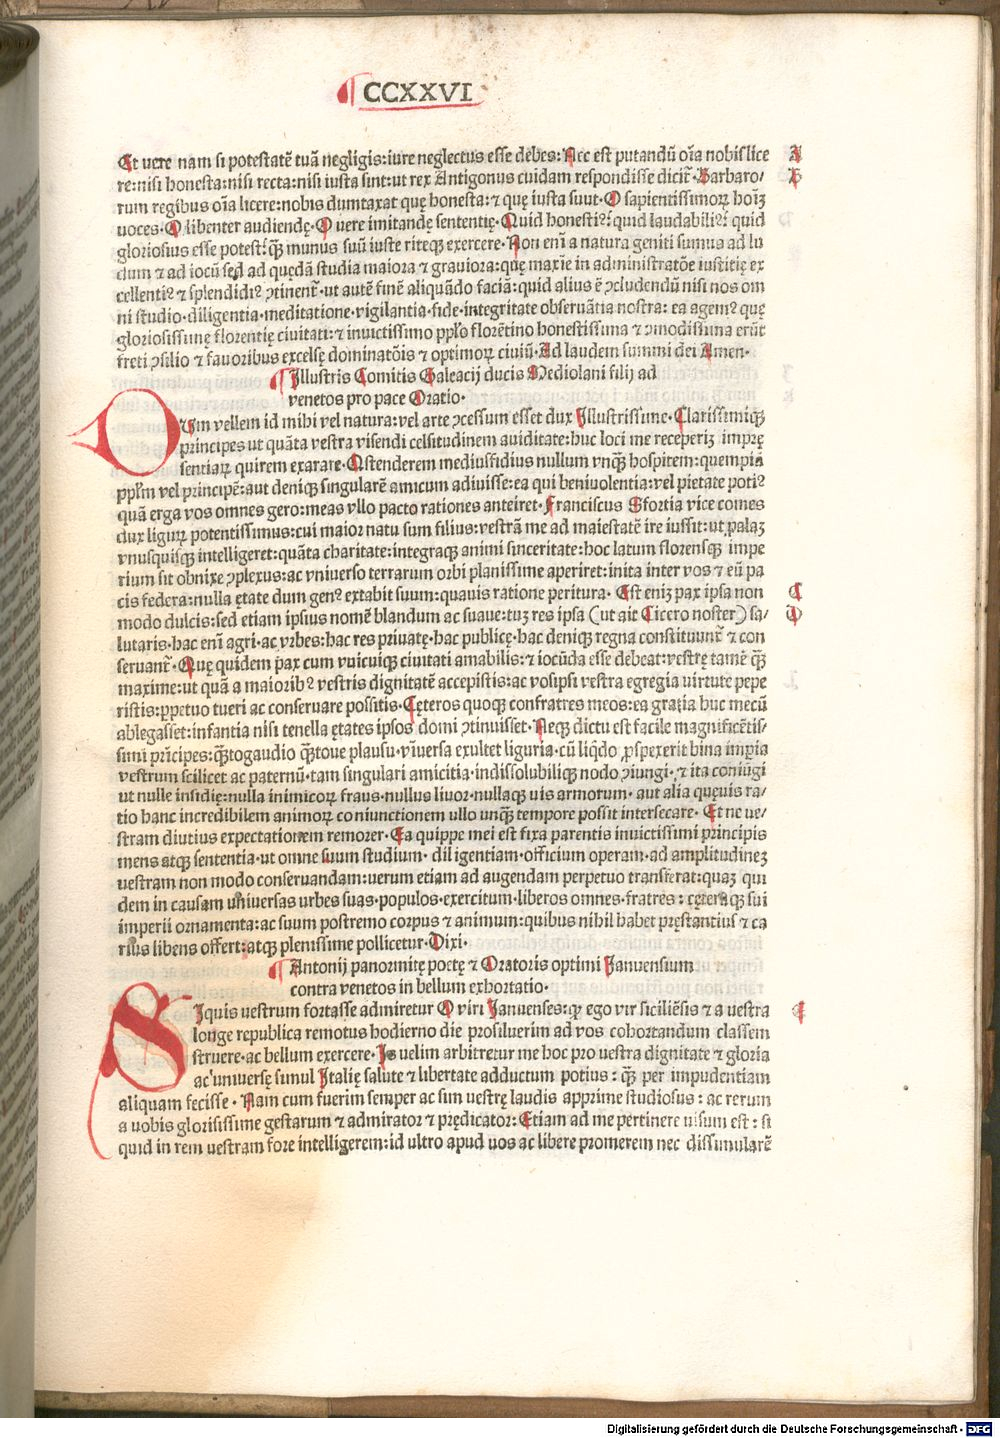 CCXXVI
Et vere nam si potestatē tuā negligis:iure neglectus esse debes: Nec est putandū oīa nobis lice A
re:nisi honesta:nisi recta:nisi iusta sint:ut rex Antigonus cuidam respondisse dicit᷒. Barbaro/ B
rum regibus oīa licere:nobis dumtaxat quę honesta:⁊ quę iusta suut. O sapientissimoꝝ hoīꝫ
uoces. O libenter audiendę. O vere imitandę sententię. Quid honesti? quid laudabili? quid
gloriosius esse potest:qꝫ munus suū iuste riteqꝫ exercere. Non enī a natura geniti sumus ad lu
dum ⁊ ad iocū sed ad quędā studia maiora ⁊ grauiora:quę maxīe in administratōe iustitię ex
cellenti⁹ ⁊ splendidi⁹ ꝯtinent᷒. ut autē finē aliquādo faciā:quid alius ē ꝯcludendū nisi nos om
ni studio.diligentia.meditatione.vigilantia.fide.integritate obseruātia nostra: ea agem⁹ quę
gloriosissimę florentię ciuitati:⁊ inuictissimo ppl'o florētino honestissima ⁊ ꝯmodissima erūt
freti ꝯsilio ⁊ fauoribus excelsę dominatōis ⁊ optimoꝝ ciuiū. Ad laudem summi dei Amen.
Illustris Comitis Galeacij ducis Mediolani filij ad
venetos pro pace Oratio.
Um vellem id mihi vel natura:vel arte ꝯcessum esset dux Illustrissime. Clarissimiqꝫ
principes ut quāta vestra visendi celsitudinem auiditate:huc loci me receperiꝫ imprę
sentiaꝝ quirem exarare.Ostenderem mediusfidius nullum vnqꝫ hospitem:quempiā
ppl'm vel principē:aut deniqꝫ singularē amicum adiuisse:ea qui beniuolentia:vel pietate poti⁹
quā erga vos omnes gero:meas vllo pacto rationes anteiret. Franciscus Sfortia vice comes
dux liguꝝ potentissimus:cui maior natu sum filius:vestrā me ad maiestatē ire iussit:ut palaꝫ
vnusquisqꝫ intelligeret:quāta charitate:integraqꝫ animi sinceritate:hoc latum florensqꝫ impe
rium sit obnixe ꝯplexus:ac vniuerso terrarum orbi planissime aperiret:inita inter vos ⁊ eū pa
cis federa:nulla ętate dum gen⁹ extabit suum:quauis ratione peritura. Est eniꝫ pax ipsa non C
modo dulcis:sed etiam ipsius nomē blandum ac suaue:tuꝫ res ipsa (ut ait Cicero noster) sa/ D
lutaris.hac enī agri.ac vrbes:hac res priuatę.hac publicę.hac deniqꝫ regna constituunt᷒ ⁊ con
seruant᷒. Quę quidem pax cum vuicuiqꝫ ciuitati amabilis:⁊ iocūda esse debeat:vestrę tamē qꝫ
maxime:ut quā a maiorib⁹ vestris dignitatē accepistis:ac vosipsi vestra egregia uirtute pepe
ristis:ꝑpetuo tueri ac conseruare possitis.Cęteros quoqꝫ confratres meos:ea gratia huc mecū
ablegasset:infantia nisi tenella ętates ipsos domi ꝯtinuisset. Neqꝫ dictu est facile magnificētis/
simi prīcipes:qꝫtogaudio qꝫtoue plausu.vīuersa exultet liguria.cū liqdo ꝓspexerit bina impīa
vestrum scilicet ac paternū.tam singulari amicitia.indissolubiliqꝫ nodo ꝯiungi. ⁊ ita coniūgi
ut nulle insidię:nulla inimicoꝝ fraus.nullus liuor.nullaqꝫ uis armorum. aut alia quęuis ra/
tio hanc incredibilem animoꝝ coniunctionem ullo unqꝫ tempore possit intersecare. Et ne ue/
stram diutius expectationem remorer.Ea quippe mei est fixa parentis inuictissimi principis
mens atqꝫ sententia.ut omne suum studium. diligentiam.officium operam.ad amplitudineꝫ
uestram non modo conseruandam:uerum etiam ad augendam perpetuo transferat:quaꝫ qui
dem in causam uniuersas urbes suas.populos.exercitum.liberos omnes.fratres: cęteraqꝫ sui
imperii ornamenta:ac suum postremo corpus ⁊ animum:quibus nihil habet pręstantius ⁊ ca
rius libens offert:atqꝫ plenissime pollicetur.Dixi.
Antonij panormitę poetę ⁊ Oratoris optimi Januensium
contra venetos in bellum exhortatio.
Iquis uestrum fortasse admiretur O viri Januenses:qꝙ ego vir siciliēsis ⁊ a uestra E
longe republica remotus hodierno die prosiluerim ad vos cohortandum classem
struere.ac bellum exercere.Is uelim arbitretur me hoc pro uestra dignitate ⁊ gloria
ac uniuersę simul Italię salute ⁊ libertate adductum potius: qꝫ per impudentiam
aliquam fecisse. Nam cum fuerim semper ac sim uestrę laudis apprime studiosus: ac rerum
a uobis glorisissime gestarum ⁊ admirator ⁊ prędicator:Etiam ad me pertinere uisum est: si
quid in rem uestram fore intelligerem:id ultro apud uos ac libere promerem nec dissimularē
Digitalisierung gefördert durch die Deutsche Forschungsgemeinschaft - DFG